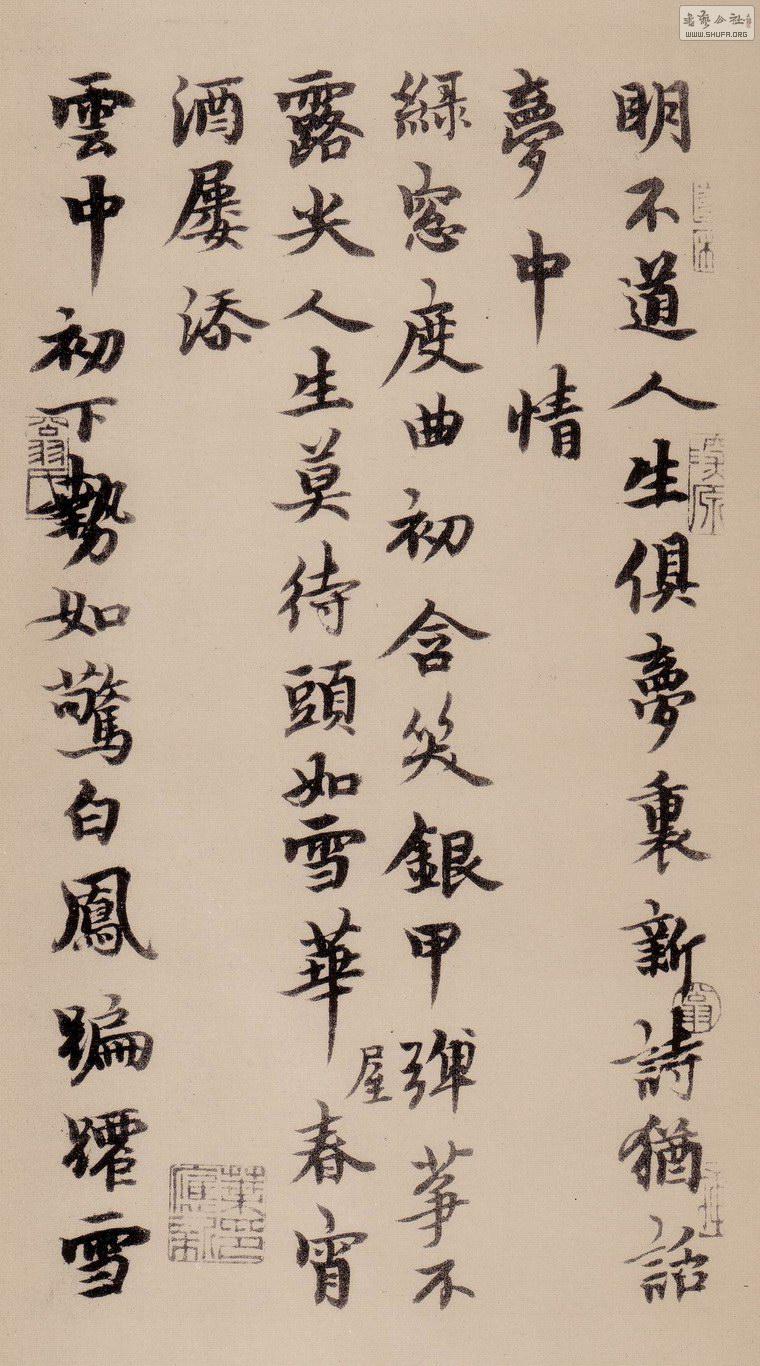 明不道人生俱夢裏新詩猶話
夢中情
綠窓度曲初含笑銀甲彈箏不
屋
露尖人生莫待頭如雪華春宵
酒屢添
雲中初下勢如驚白鳳蹁躚雪
WWW.SHUFA.ORG